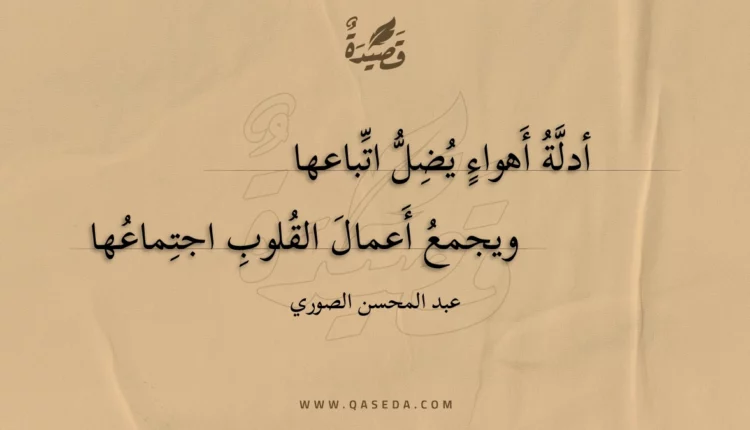 قَصِيْدَةٌ
أدلَّةُ أَهواءٍ يُضِلُّ اتِّباعها
ويجمعُ أَعمالَ القُلوبِ اجتِماعُها
عبد المحسن الصوري
WWW.QASEDA.COM